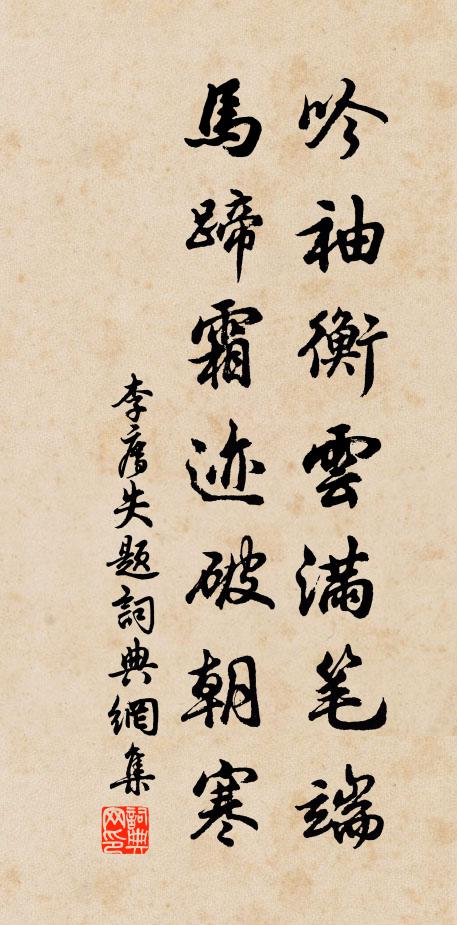 吟袖衡雲滿笔端
馬蹄霜迹破朝寒
李廌失題詞典網集
詞典网印